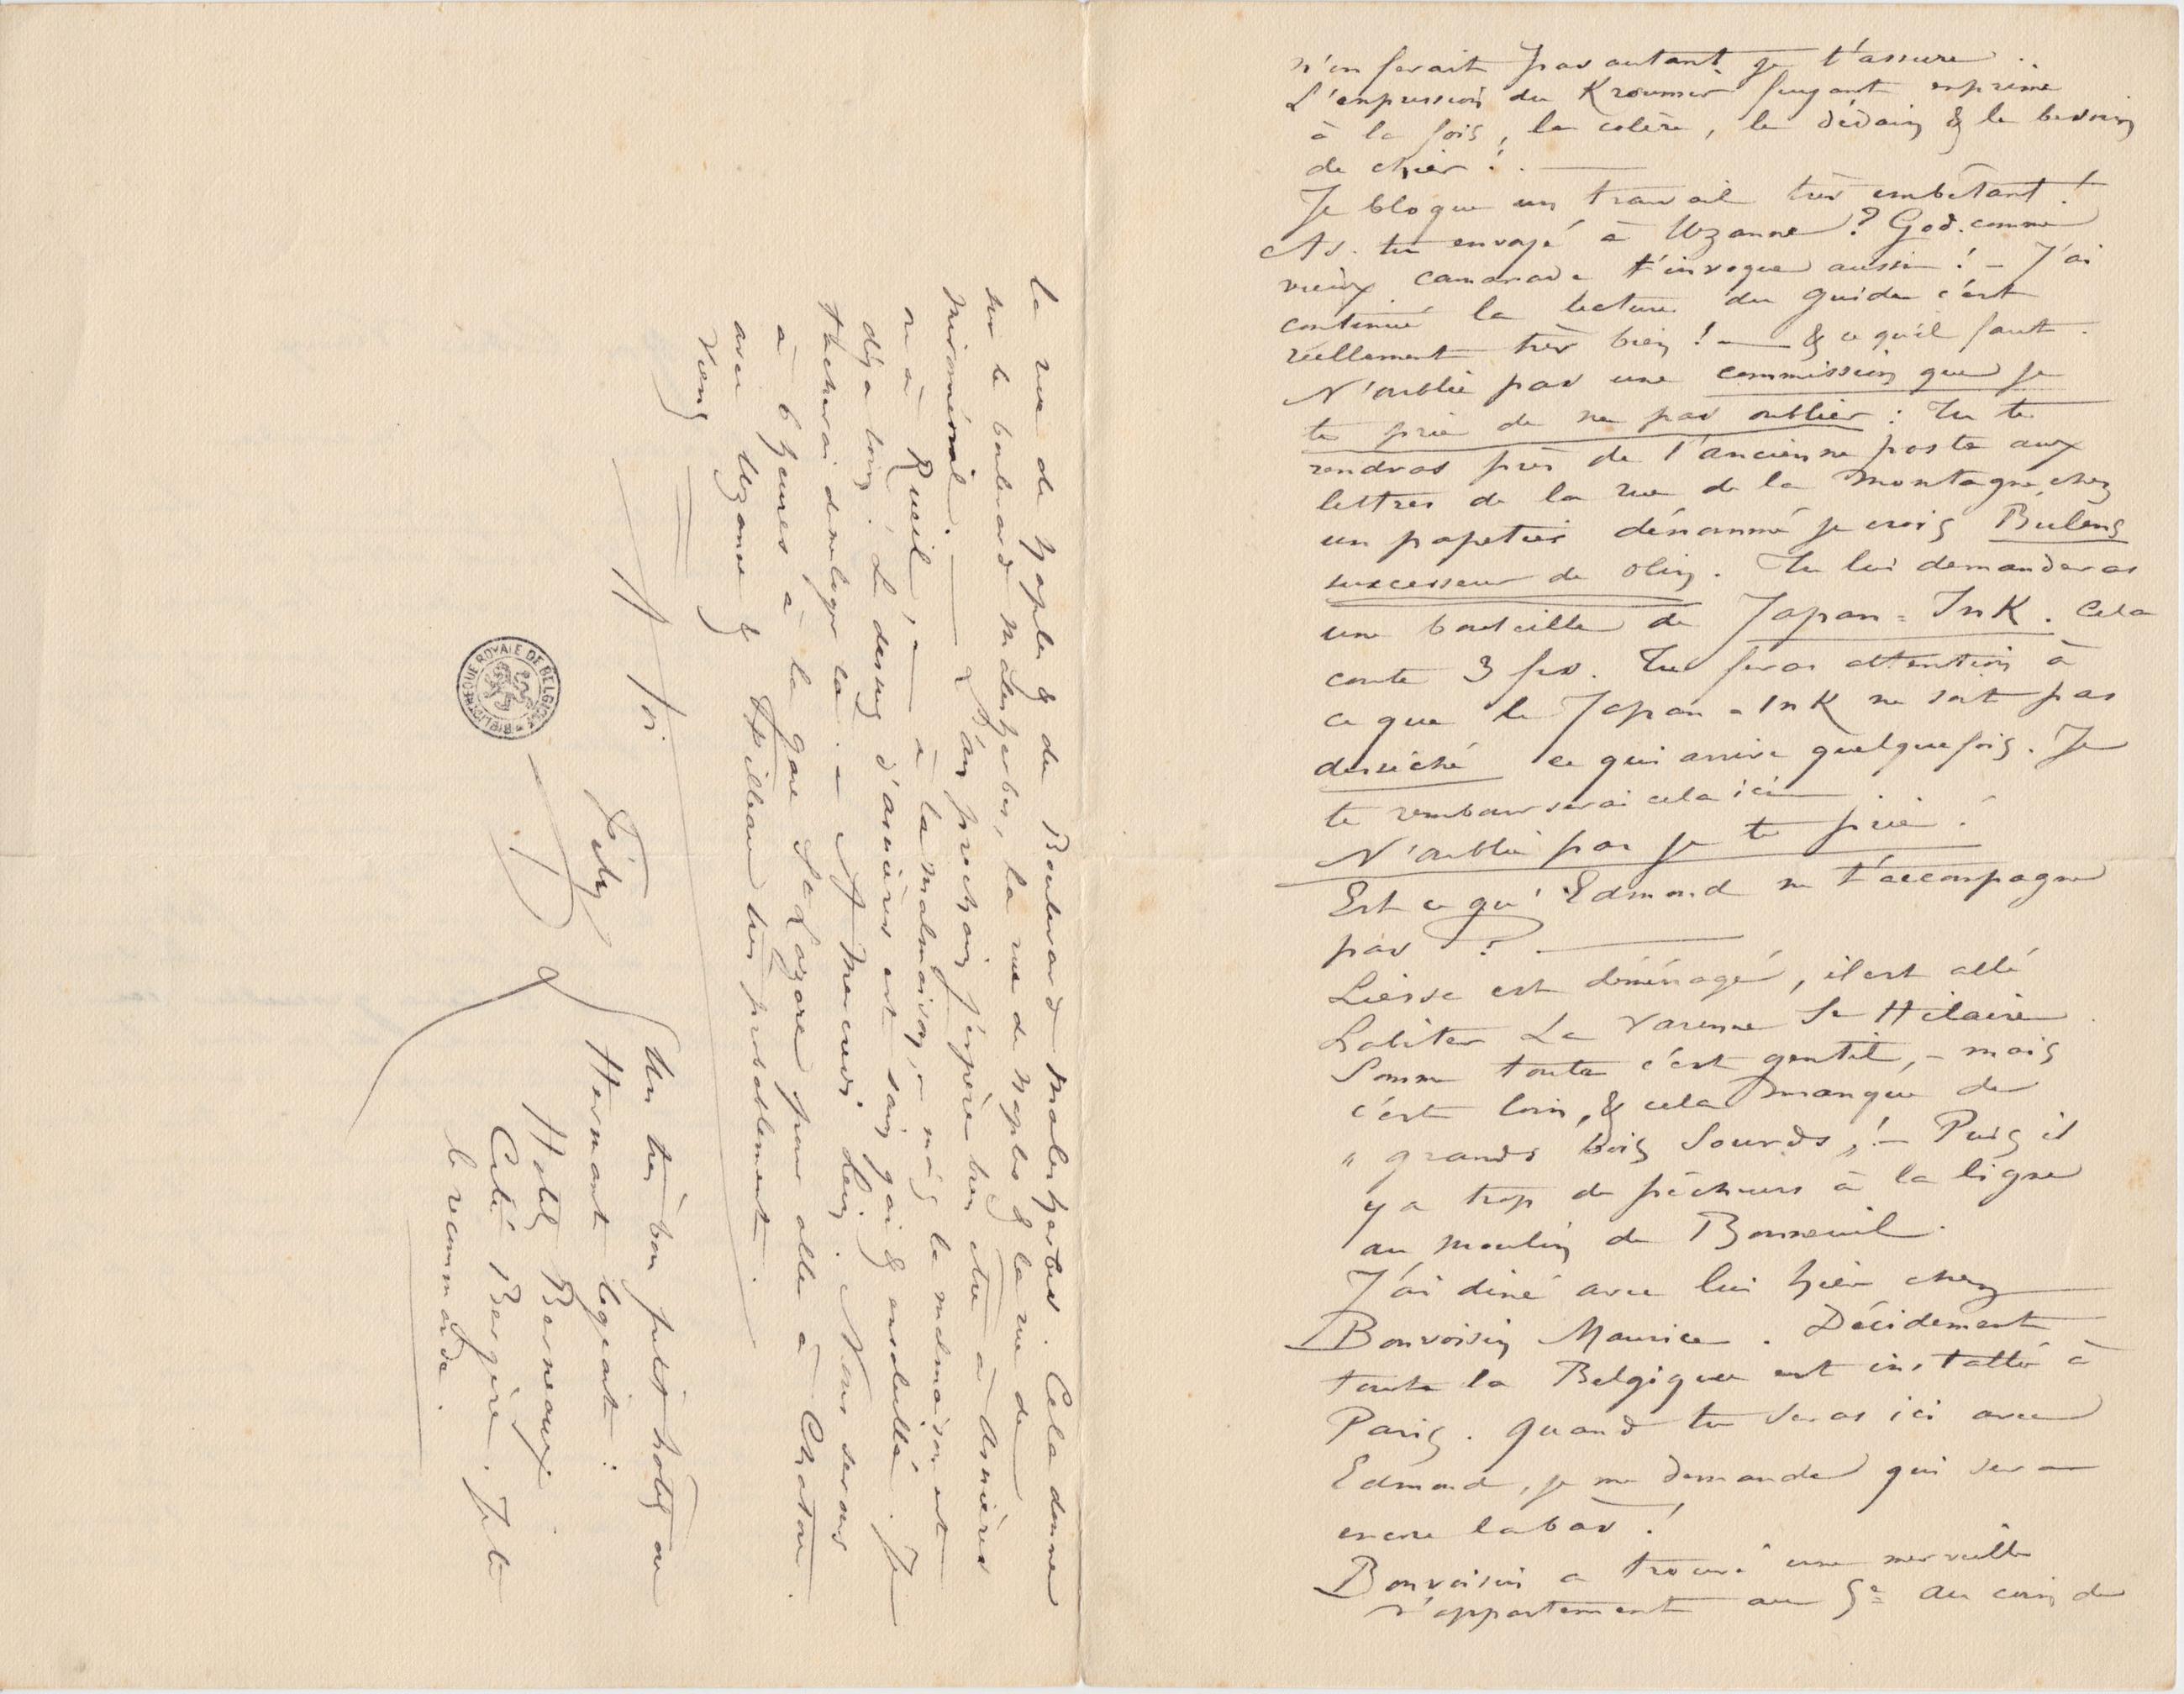 n'en ferait pas autant je t'assure ..
L'expression du Kroumir fuyant exprime
à la fois, la colère, le dédain & le besoin
de chier !.
Je bloque un travail très embêtant !
As-tu envoyé à Uzanne ? God. comme
vieux camarade t'invoque aussi ! – J'ai
continué la lecture du guide c'est
réellement très bien ! — & ce qu'il faut.
N'oublie pas une commission que je
te prie de ne pas oublier : Tu te
rendras près de l'ancienne poste aux
lettres de la rue de la Montagne, chez
un papetier dénommé je crois Bulens
successeur de Olin. Tu lui demanderas
une bouteille de Japan=Ink. Cela
coute 3 frs. Tu feras attention à
ce que le Japan-Ink ne soit pas
desséché ce qui arrive quelquefois. Je
te rembourserai cela ici
N'oublie pas je te prie !
Est ce qu'Edmond ne t'accompagne
pas ?
Liesse est déménagé, il est allé
habiter La Varenne St Hilaire
Somme toute c'est gentil, – mais
c'est loin, & cela manque de
" grands bois sourds " ! – Puis il
y a trop de pêcheurs à la ligne
au moulin de Bonneuil.
J'ai diné avec lui hier chez
Bonvoisin Maurice. Décidement
toute la Belgique est installée à
Paris. Quand tu seras ici avec
Edmond, je me demande qui sera
encore labas !
Bonvoisin a trouvé une merveille
d'appartement au 5e au coin de
la rue de Naples & du Boulevard Malesherbes. Cela donne
sur le boulevard Malesherbes, la rue de Naples & la rue de
Miroménil. — L'an prochain j'espère bien être à Asnières
ou à Rueil, – à la Malmaison, – mais la Malmaison est
déja loin ! Le dessus d'Asnières est sain gai & ensoleillé. Je
chercherai dans ligne là. – A Mercredi Lein. Nous serons
à 6 heures à la gare St Lazare pour aller à Chatou
avec Uzanne & Filleau très probablement.
Viens
A toi
Fély
Un très bon petit hôtel où
Hermant logeait :
Hotel Berneaux
Cité Bergère. Je te
le recommande.
BIBLIOTHEQUE ROYALE DE BELGIQUE